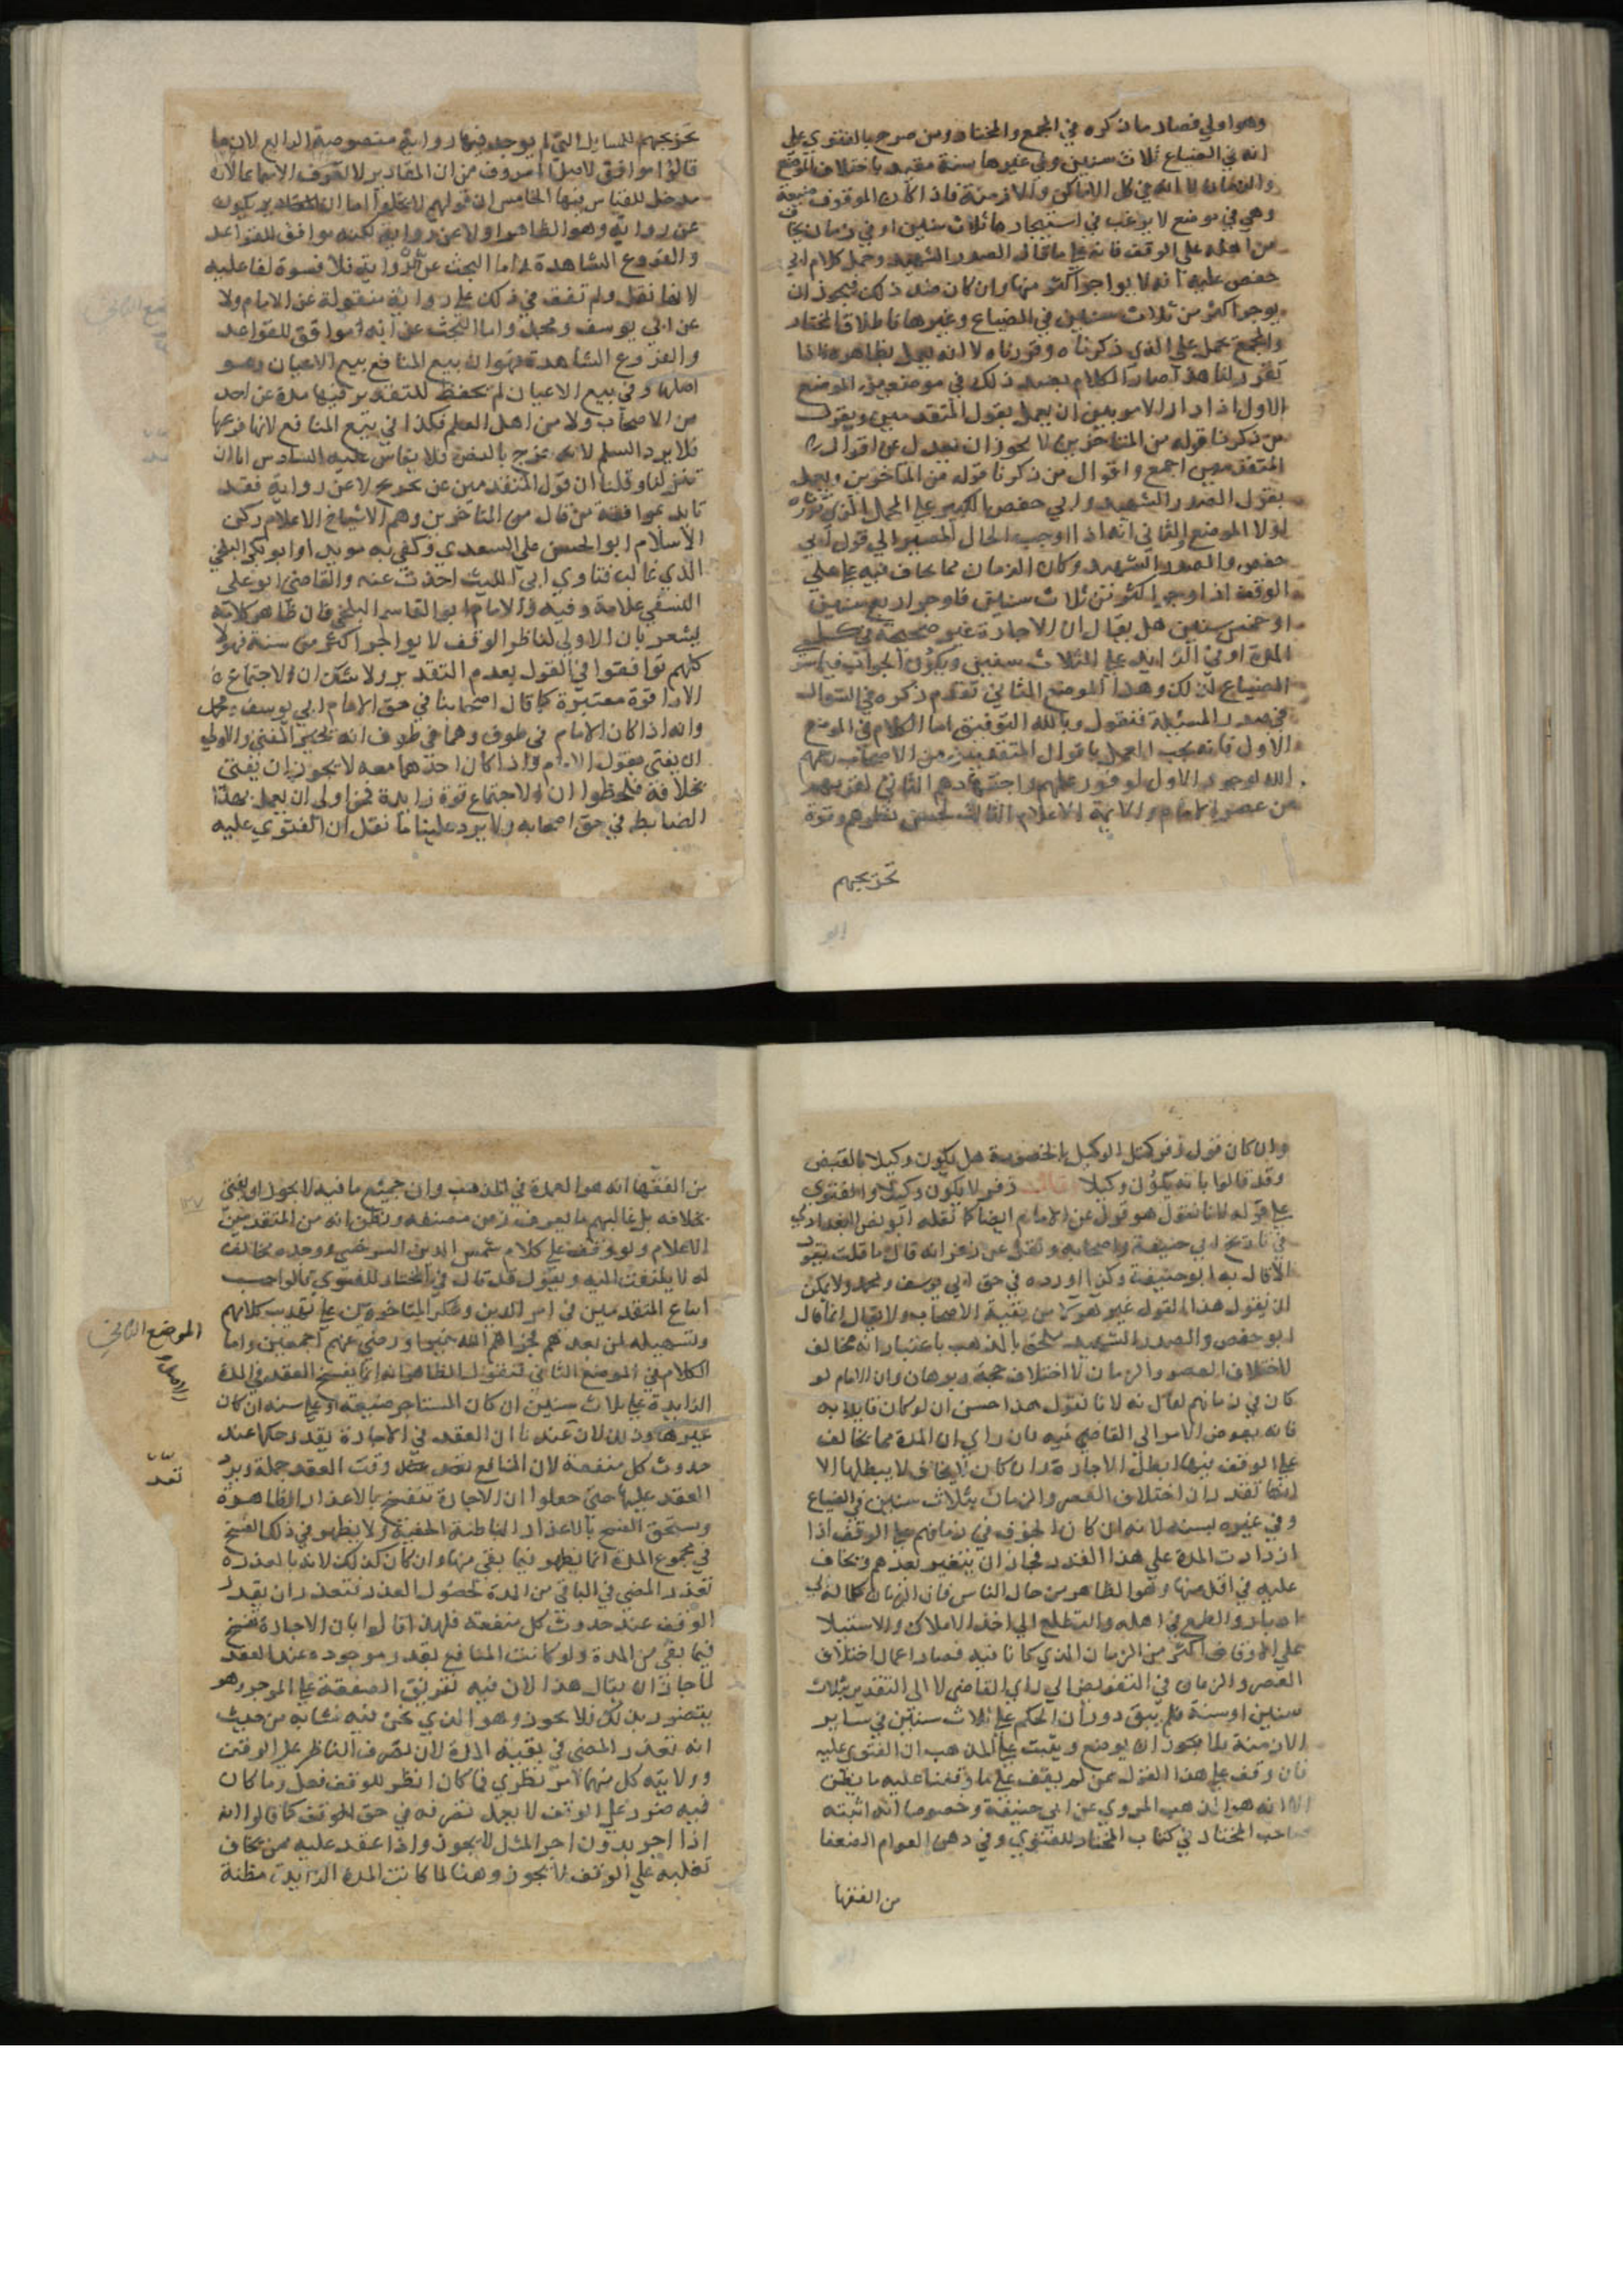 وهو اولي فصار ما ذكره في المجمع والمختار ومن صرح بالفتوي علي
انه في الضياع ثلاث سنين وفي غيرها سنة مقيد باختلاف الموضع
والزمان لا انه في كل الاماكن والازمنة فاذا كان الموقوف ضيعة
وهي في موضع لا يرغب في استيجارها ثلاث سنين او في زمان يخاف
من اهله علي الوقف فانه علي ما قال الصدر الشهيد وحمل كلام ابي
حفص عليه انه لا يواجر اكثر منها وان كان ضد ذلك فيجوز ان
يوجر اكثر من ثلاث سنين في الضياع وغيرها فاطلاق المختار
والمجمع يحمل علي الذي ذكرناه وقررناه لا انه يعمل بظاهره فاذا
تقرر لنا هذا صار الكلام بعد ذلك في موضعين الموضع
الاول اذا دار الامر بين ان يعمل بقول المتقدمين وبقول
من ذكرنا قوله من المتاخرين لا يجوز ان نعدل عن اقوال
المتقدمين اجمع واقوال من ذكرنا قوله من المتاخرين ويعمل
بقول الصدر الشهيد وابي حفص الكبير علي المحمل الذي
الموضع الثاني انه اذا اوجب الحال المصير الي قول ابي
حفص والصدر الشهيد وكان الزمان مما يخاف فيه علي
الوقف اذا اوجر اكثر من ثلاث سنين فاوجر اربع سنين
او خمس سنين هل يقال ان الاجارة غير صحيحة في كل
المدة او في الزايد علي الثلاث سنين ويكون الجواب في
الضياع كذلك وهذا الموضع الثاني تقدم ذكره في السوال
في صدر المسئلة فنقول وبالله التوفيق اما الكلام في الموضع
الاول فانه يجب العمل باقوال المتقدمين من الاصحاب رحمهم
الله لوجوه الاول لوفور علمهم واجتهادهم الثاني لقربهم
من عصر الامام والايمة الاعلام الثالث لحسن نظرهم وقوة
تخريجهم
تخريجهم للمسايل التي لم يوجد فيها رواية منصوصة الرابع لان ما
قالوا موافق لاصل معروف من ان المقادير لا تعرف الا سماعا لانه لا
مدخل للقياس فيها الخامس ان قولهم لا يخلوا اما ان يكون
عن رواية وهو الظاهر اولا عن رواية لكنه موافق للقواعد
والفروع الشاهدة له اما البحث عن الرواية فلا
لانها نقل ولم تقف في ذلك علي رواية منقولة عن الامام ولا
عن ابي يوسف ومحمد واما البحث عن انه موافق للقواعد
والفروع الشاهدة فهو ان بيع المنافع بيع الاعيان وهو
اصلها وفي بيع الاعيان لم يحفظ للتقدير فيها مدة عن احد
من الاصحاب ولا من اهل العلم فكذا في بيع المنافع لانها فرعها
فلا يرد السلم لانه خرج بالنص فلا يقاس عليه السادس اما ان
تنزلنا وقلنا ان قول المتقدمين عن تخريج لا عن رواية فقد
تايد بموافقة من قال من المتاخرين وهم الاشياخ الاعلام ركن
الاسلام ابو الحسن علي السعدي وكفي به مويدا وابو بكر البلخي
الذي غالب فتاوي ابي الليث اخذت عنه والقاضي ابو علي
النسفي علامة وفيه والامام ابو القاسم البلخي فان ظاهر كلامه
يشعر بان الاولي لناظر الوقف لا يواجر اكثر من سنة فهولا
كلهم توافقوا في القول بعدم التقدير ولا شك ان لاجتماع
الارا قوة معتبرة كما قال اصحابنا في حق الامام ابي يوسف ومحمد
وانه اذا كان الامام في طرف وهما في طرف انه يخير المفتي والاولي
ان يفتي بقول الامام واذا كان احدهما معه لا يجوز ان يفتي
بخلافه فلحظوا ان للاجتماع قوة زايدة فمن اولي ان يعمل بهذا
الضابط في حق اصحابه ولا يرد علينا ما نقل ان الفتوي عليه
وان كان قول زفر كمثل الوكيل بالخصومة هل يكون وكيلا بالقبض
وقد قالوا بانه يكون وكيلا وقال زفر لا يكون وكيلا والفتوي
علي قوله لانا نقول هو قول عن الامام ايضا كما نقله ابو نصر البغدادي
في تاريخ ابي حنيفة واصحابه ونقل عن زفر انه قال ما قلت بقول
الا قال به ابو حنيفة وكذا اورده في حق ابي يوسف ومحمد ولا يمكن
ان يقول هذا القول غير هولا من بقية الاصحاب ولا يقال انما قال
ابو حفص والصدر الشهيد ملحق بالمذهب باعتبار انه مخالف
لاختلاف العصر والزمان لا اختلاف حجة وبرهان وان الامام لو
كان في زمانهم لقال به لانا نقول هذا حسن ان لو كان قايلا به
فانه يفوض الامر الي القاضي فيه فان راي ان المدة مما يخاف
علي الوقف فيها ابطل الاجارة وان كان لا يخاف لا يبطلها الا
انها تقدر ان اختلاف العصر والزمان بثلاث سنين في الضياع
وفي غيره بسنة لانه ان كان الخوف في زمانهم علي الوقف اذا
ازدادت المدة علي هذا القدر فجاز ان يتغير بعدهم ويخاف
عليه في اقل منها وهو الظاهر من حال الناس فان الزمان كلما له في
ادبار والطمع في اهله والتطلع الي اخذ الاملاك والاستيلا
علي الاوقاف اكثر من الزمان الذي كانا فيه فصار اعمال اختلاف
العصر والزمان في التفويض الي راي القاضي لا الي التقدير بثلاث
سنين او سنة فلم يبق دوران الحكم علي ثلاث سنين في ساير
الازمنة مما يجوز ان يوضع ويثبت علي المذهب ان الفتوي عليه
فان وقف علي هذا القول من لم يقف علي ما وقفنا عليه ما يظن
الا انه هو المذهب المروي عن ابي حنيفة وخصوصا انه اثبته
صاحب المختار في كتاب المختار للفتوي وفي ذهن العوام الضعفا
من الفقها
من الفقها انه هو العمدة في المذهب وان جميع ما فيه لا يجوز ان يفتي
بخلافه بل غالبهم ما يعرف زمن مصنفه ويظن انه من المتقدمين
الاعلام ولو وقف علي كلام شمس الدين السرخسي ووجده مخالف
له لا يلتفت اليه ويقول قد قال في المختار للفتوي فالواجب
اتباع المتقدمين في امر الدين وشكر المتاخرين علي تقريب كلامهم
وتسهيله لمن بعدهم فجزاهم الله خيرا ورضي عنهم اجمعين واما
الكلام في الموضع الثاني فنقول الظاهر انه انما يفسخ العقد في المدة
الزايدة علي ثلاث سنين ان كان المستاجر ضيعة او علي سنة ان كان
غيرها وذلك لان عندنا ان العقد في الاجارة يقدر حكما عند
حدوث كل منفعة لان المنافع وقت العقد جملة ويرد
العقد عليها حتي جعلوا ان الاجارة تفسخ بالاعذار الظاهرة
ويستحق الفسخ بالاعذار الباطنة الخفية ولا يظهر في ذلك الفسخ
في مجموع المدة انما يظهر فيما بقي منها وان كان كذلك لانه بالعذر
تعذر المضي في الباقي من المدة لحصول العذر فتعذر ان يقدر
الوقف عند حدوث كل منفعة فلهذا قالوا بان الاجارة تفسخ
فيما بقي من المدة ولو كانت المنافع تقدر موجوده عند العقد
لما جاز ان يقال هذا لان فيه تفريق الصفقة علي الموجر وهو
يتضرر بذلك فلا يجوز وهو الذي نحن فيه نشابه من حيث
انه تعذر المضي في بقية المدة لان تصرف الناظر علي الوقف
وولايته كل منهما امر نظري فما كان انظر للوقف فعل وما كان
فيه ضرر علي الوقف لا يعمل تصرفه في حق الوقف كما قالوا انه
اذا اجر بدون اجر المثل لا يجوز واذا عقد عليه ممن يخاف
تغلبه علي الوقف لا يجوز وهنا لما كانت المدة الزايدة مظنة
الموضع الثاني